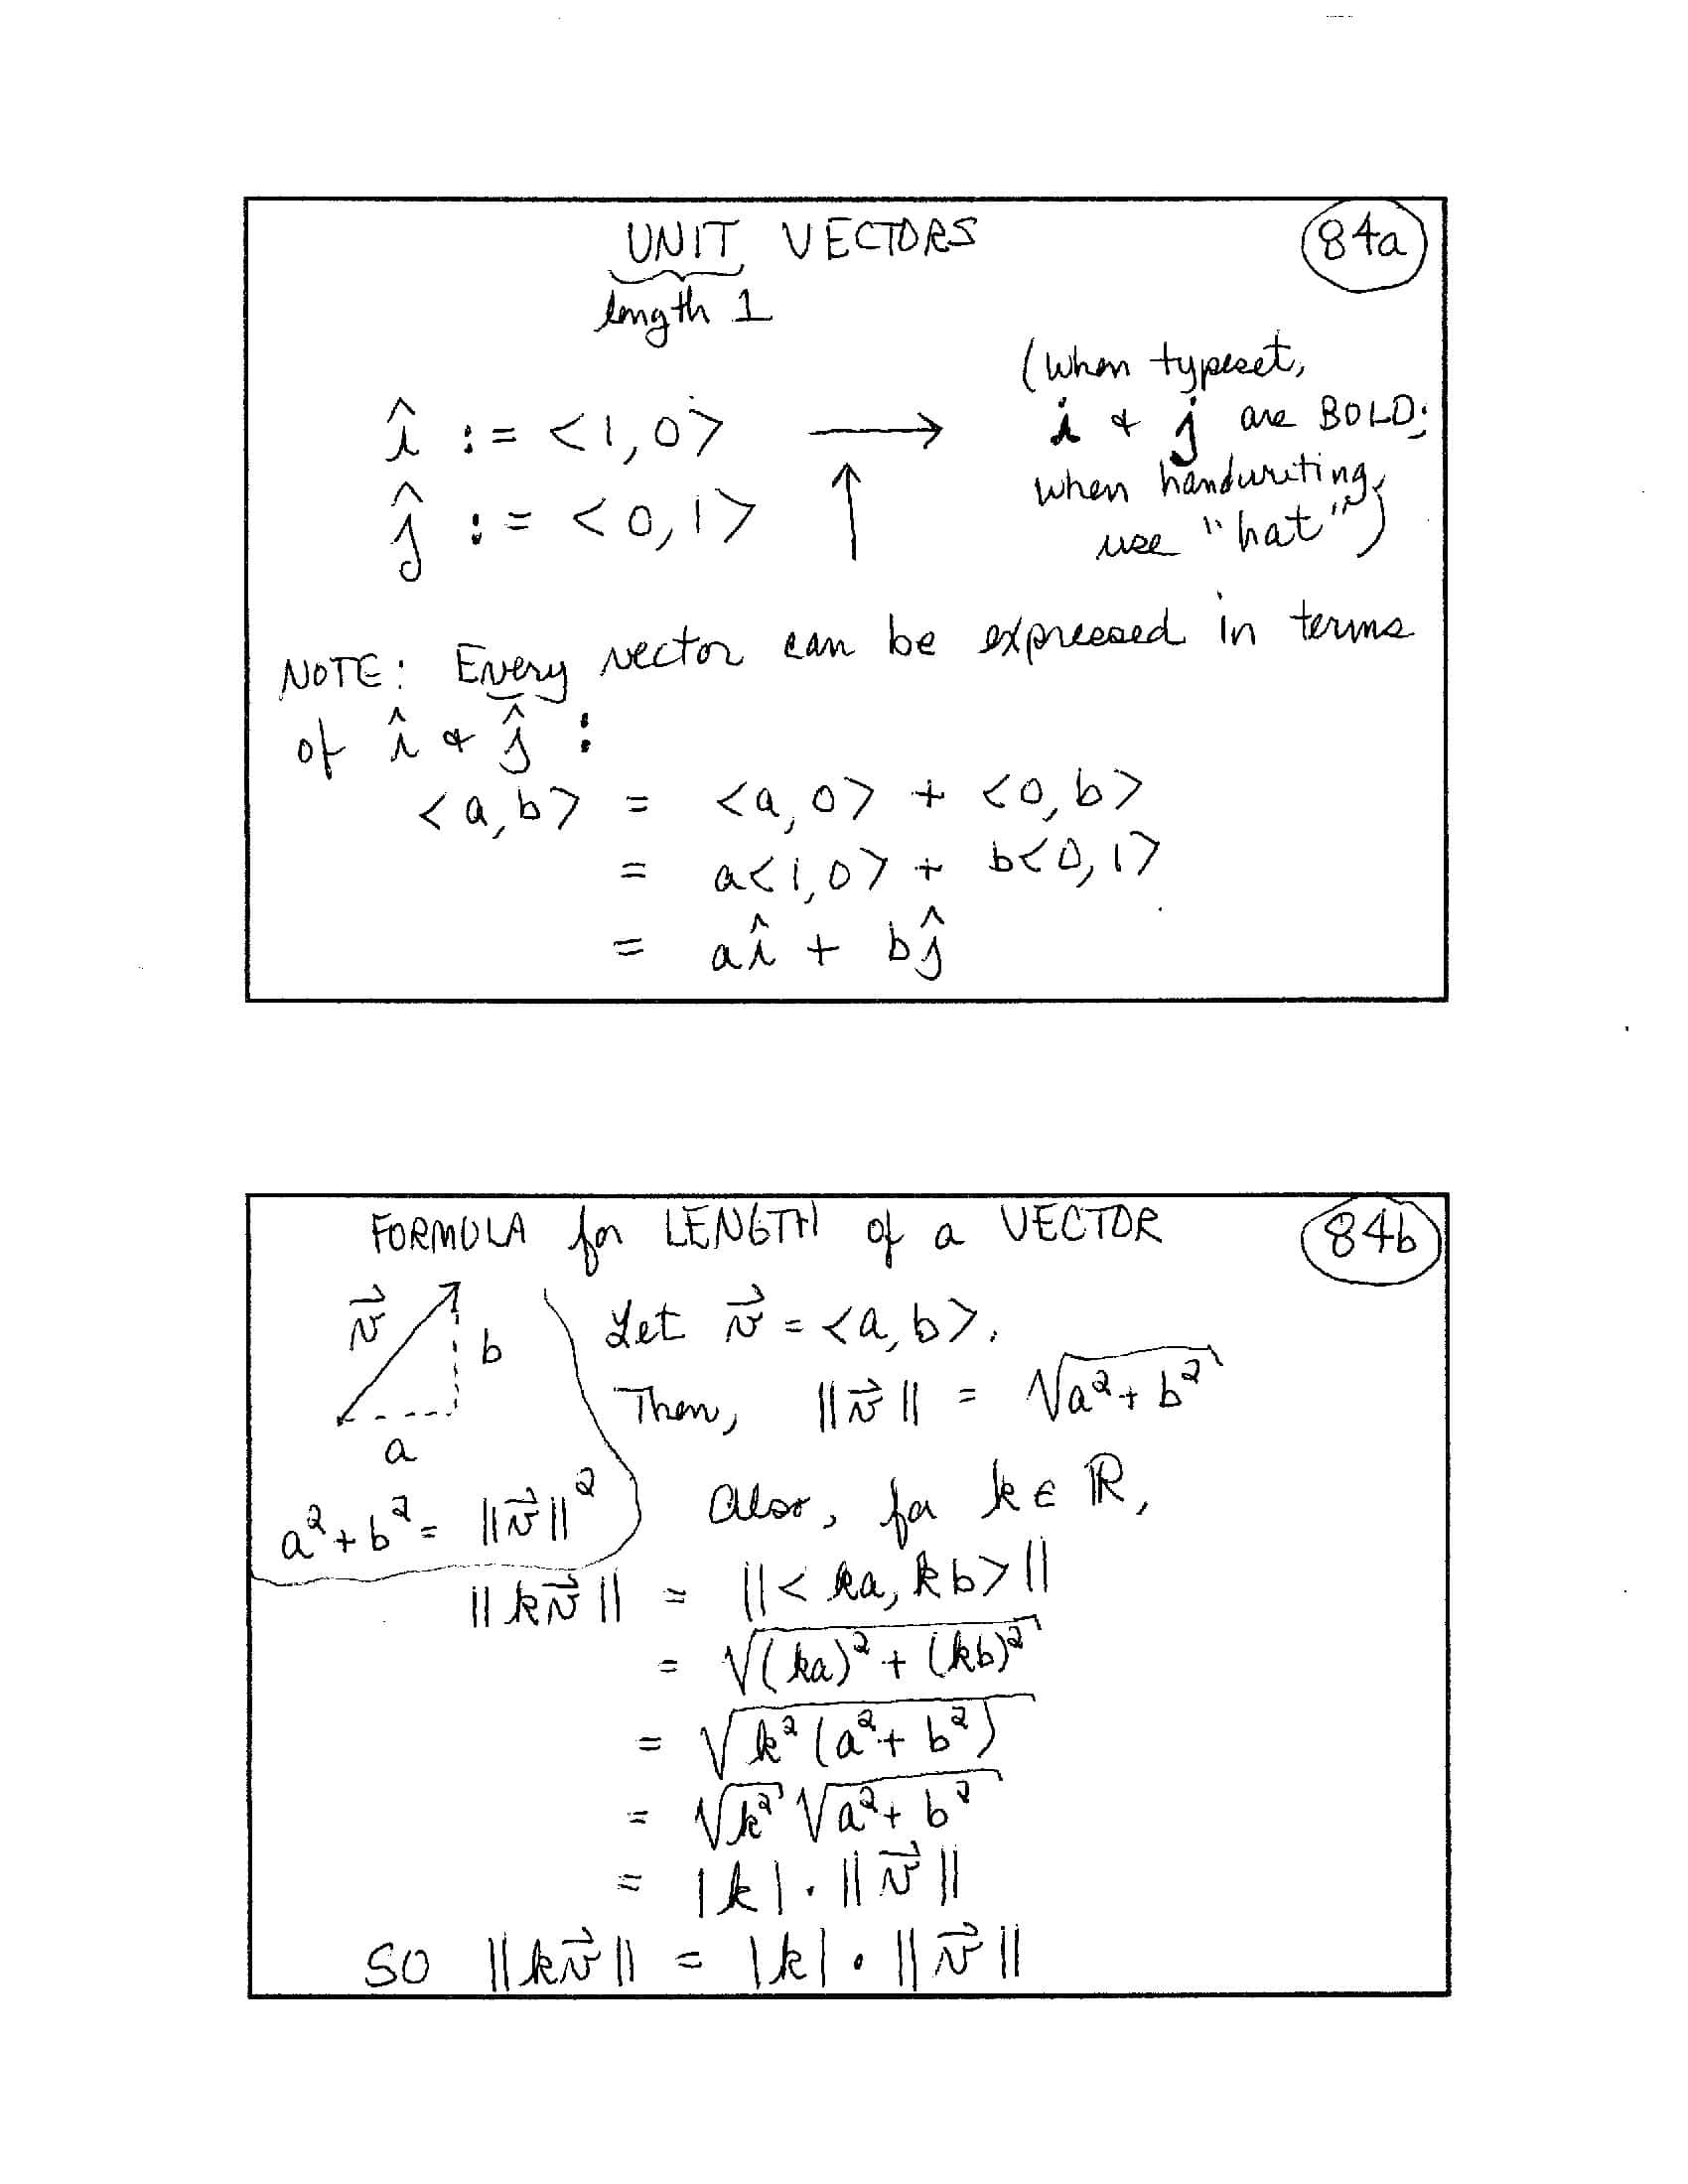 UNIT VECTORS
84a
length 1
î := <1,0> →
ĵ := <0,1> ↑
(when typeset,
i & j are BOLD;
when handwriting,
use "hat")
NOTE: Every vector can be expressed in terms
of î & ĵ :
<a,b> = <a,0> + <0,b>
= a<1,0> + b<0,1>
= aî + bĵ
FORMULA for LENGTH of a VECTOR
84b
v⃗
b
a
a² + b² = ||v⃗||²
Let v⃗ = <a,b>.
Then, ||v⃗|| = √(a² + b²)
Also, for k ∈ ℝ,
||kv⃗|| = ||<ka, kb>||
= √((ka)² + (kb)²)
= √(k²(a² + b²))
= √(k²) √(a² + b²)
= |k| · ||v⃗||
SO ||kv⃗|| = |k| · ||v⃗||